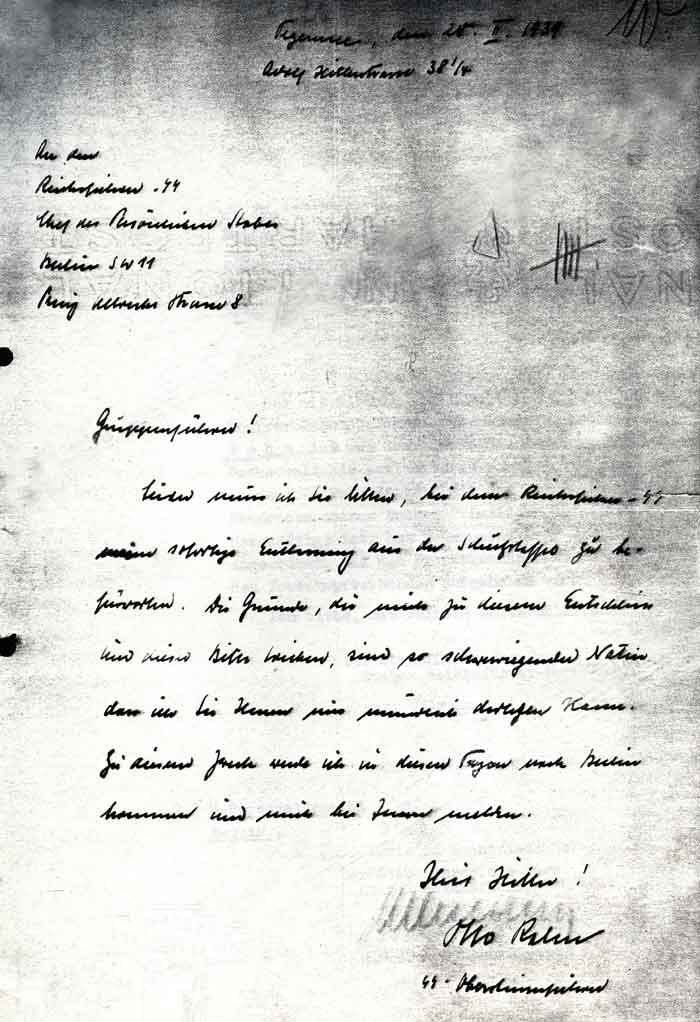 Tegernsee, den 28. II. 1939
Adolf Hitlerstrasse 38 1/4
An den
Reichsführer-SS
Chef des Persönlichen Stabes
Berlin SW 11
Prinz Albrecht Strasse 8
Gruppenführer!
Leider muss ich Sie bitten, bei dem Reichsführer-SS
meine sofortige Entlassung aus der Schutzstaffel zu be-
fürworten. Die Gründe, die mich zu diesem Entschluss
und dieser Bitte bewegen, sind so schwerwiegender Natur
dass ich sie Ihnen nur mündlich darlegen kann.
Zu diesem Zweck werde ich in diesen Tagen nach Berlin
kommen und mich bei Ihnen melden.
Heil Hitler!
Otto Rahn
SS-Obersturmführer